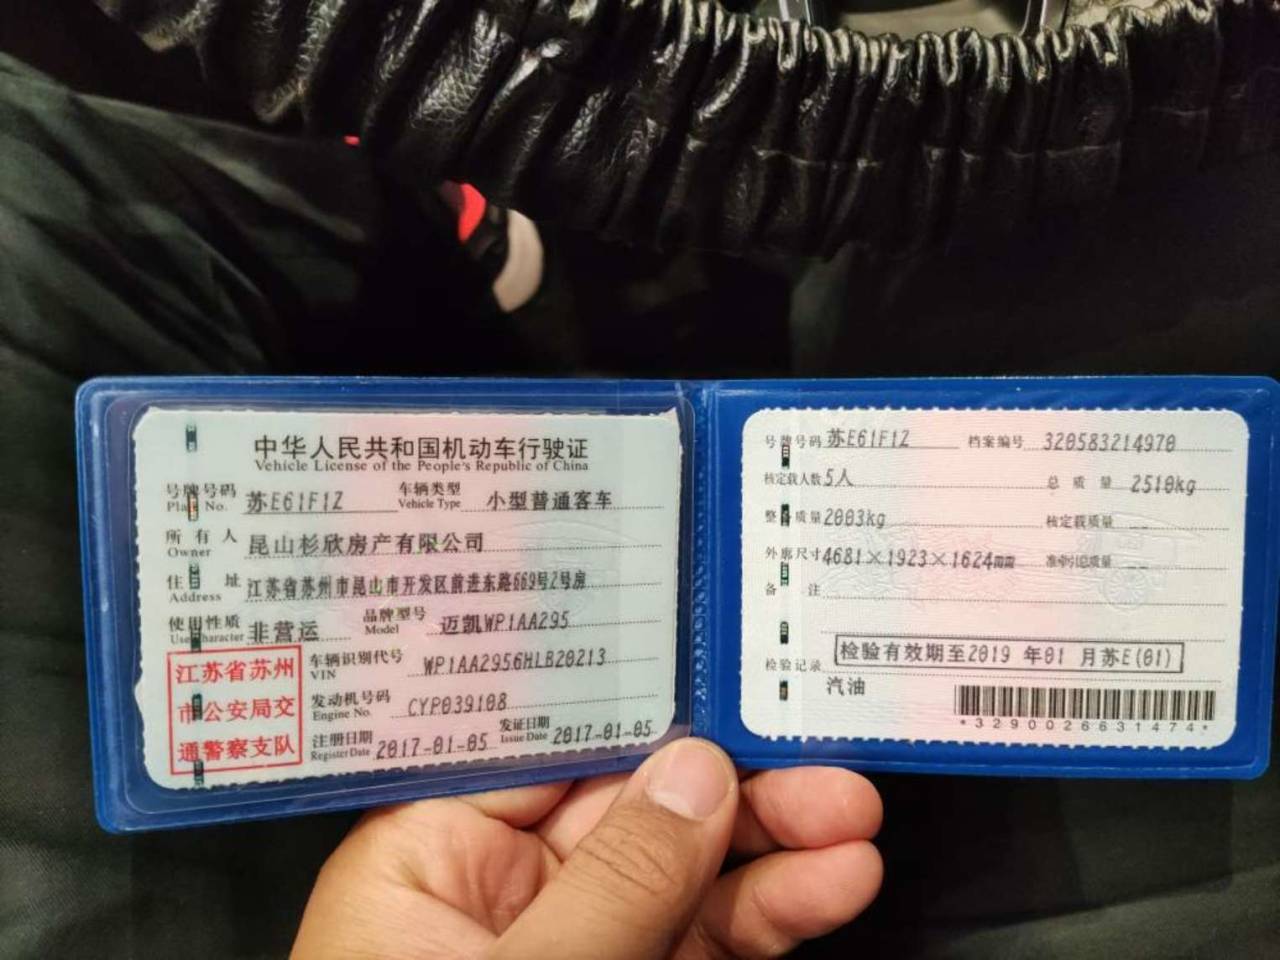 中华人民共和国机动车行驶证
Vehicle License of the People's Republic of China
号牌号码 苏E61F1Z 车辆类型 小型普通客车
Plate No. Vehicle Type
所有人 昆山杉欣房产有限公司
Owner
住址 江苏省苏州市昆山市开发区前进东路669号2号房
Address
使用性质 非营运 品牌型号 迈凯WP1AA295
Use Character Model
江苏省苏州
市公安局交
通警察支队
车辆识别代号 WP1AA2956HLB20213
VIN
发动机号码 CYP039108
Engine No.
注册日期 2017-01-05 发证日期 2017-01-05
Register Date Issue Date
号牌号码 苏E61F1Z 档案编号 320583214970
核定载人数 5人 总质量 2510kg
整备质量 2003kg 核定载质量 --
外廓尺寸 4681×1923×1624mm 准牵引总质量 --
备注
检验记录 检验有效期至2019年01月苏E(01)
汽油
*3290026631474*